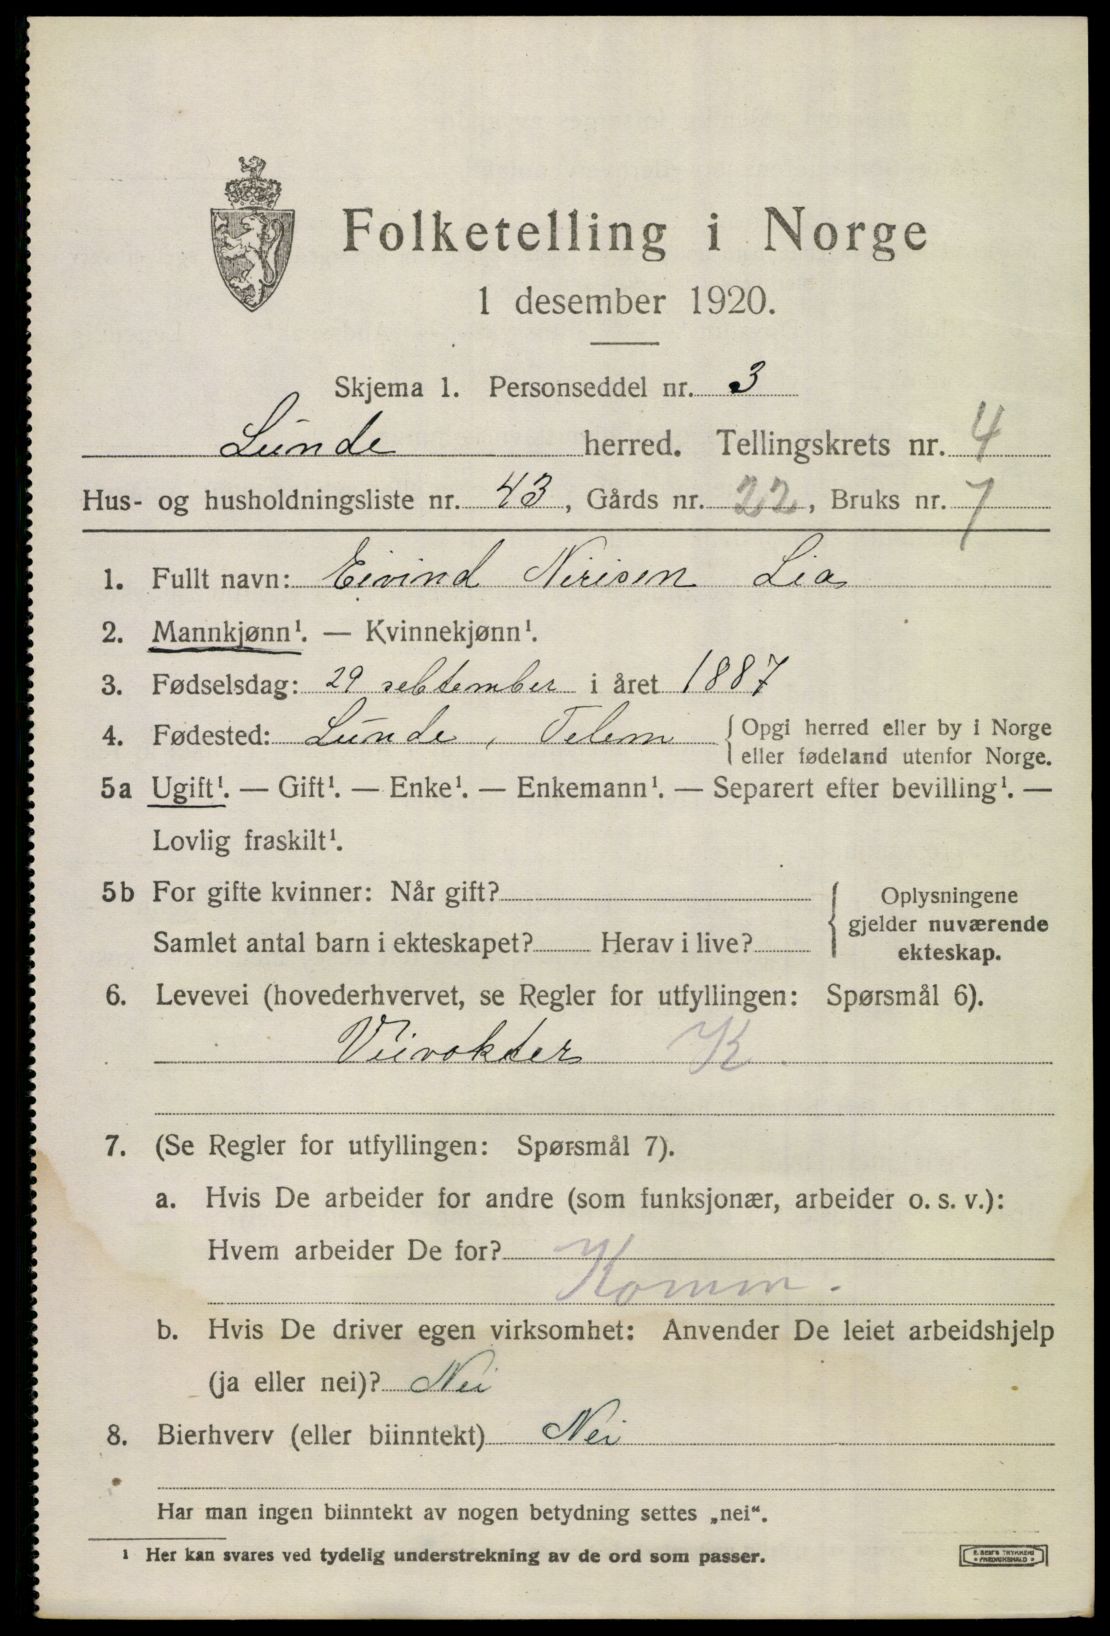 Folketelling i Norge
1 desember 1920.
Skjema 1. Personseddel nr. 3
Lunde herred. Tellingskrets nr. 4
Hus- og husholdningsliste nr. 43, Gårds nr. 22, Bruks nr. 7
1. Fullt navn: Eivind Nirisen Lia
2. Mannkjønn¹. — Kvinnekjønn¹.
3. Fødselsdag: 29 sebtember i året 1887
4. Fødested: Lunde, Telem {Opgi herred eller by i Norge
eller fødeland utenfor Norge.
5a Ugift¹. — Gift¹. — Enke¹. — Enkemann¹. — Separert efter bevilling¹. —
Lovlig fraskilt¹.
5b For gifte kvinner: Når gift?
Samlet antal barn i ekteskapet? Herav i live?
{Oplysningene
gjelder nuværende
ekteskap.
6. Levevei (hovederhvervet, se Regler for utfyllingen: Spørsmål 6).
Veivokter K.
7. (Se Regler for utfyllingen: Spørsmål 7).
a. Hvis De arbeider for andre (som funksjonær, arbeider o. s. v.):
Hvem arbeider De for?
Komm.
b. Hvis De driver egen virksomhet: Anvender De leiet arbeidshjelp
(ja eller nei)? Nei
8. Bierhverv (eller biinntekt) Nei
Har man ingen biinntekt av nogen betydning settes „nei".
¹ Her kan svares ved tydelig understrekning av de ord som passer.
E. SEM'S TRYKKERI
FREDRIKSHALD